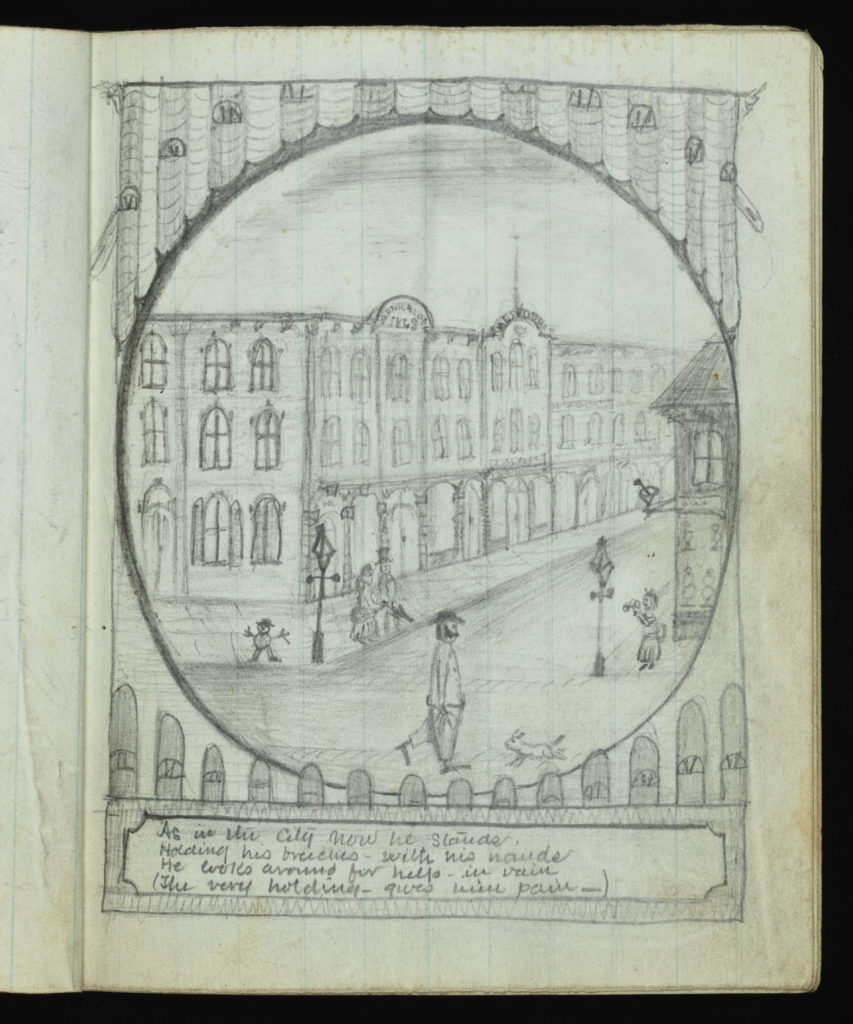 1868
As in the City now he stands,
Holding his breeches - with his hands
He looks around for help - in vain
(The very holding - gives him pain —)